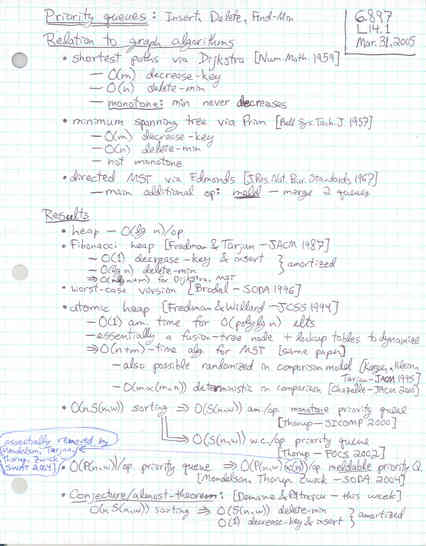 Priority queues: Insert, Delete, Find-Min
6.897
L14.1
Mar. 31, 2005
Relation to graph algorithms
• shortest paths via Dijkstra [Num. Math. 1959]
– O(m) decrease-key
– O(n) delete-min
– monotone: min never decreases
• minimum spanning tree via Prim [Bell Sys. Tech. J. 1957]
– O(m) decrease-key
– O(n) delete-min
– not monotone
• directed MST via Edmonds [J. Res. Nat. Bur. Standards 1967]
– main additional op: meld – merge 2 queues
Results
• heap – O(lg n)/op
• Fibonacci heap [Fredman & Tarjan – JACM 1987]
– O(1) decrease-key & insert } amortized
– O(lg n) delete-min
⇒ O(n lg n + m) for Dijkstra, MST
• worst-case version [Brodal – SODA 1996]
• atomic heap [Fredman & Willard – JCSS 1994]
– O(1) am. time for O(polylg n) elts
– essentially a fusion-tree node + lookup tables to dynamize
⇒ O(n+m)-time alg. for MST [same paper]
– also possible randomized in comparison model [Karger, Klein, Tarjan – JACM 1995]
– O(m α(m,n)) deterministic in comparison [Chazelle – JACM 2000]
• O(n S(n,w)) sorting ⇒ O(S(n,w)) am./op. monotone priority queue
[Thorup – SICOMP 2000]
↳ O(S(n,w)) w.c./op priority queue
[Thorup – FOCS 2002]
essentially removed by
Mendelson, Tarjan,
Thorup, Zwick –
SWAT 2004
• O(P(n,w))/op. priority queue ⇒ O(P(n,w) α(n))/op meldable priority Q.
[Mendelson, Thorup, Zwick – SODA 2004]
• Conjecture/almost-theorem: [Demaine & Pătraşcu – this week]
O(n S(n,w)) sorting ⇒ O(S(n,w)) delete-min } amortized
O(1) decrease-key & insert